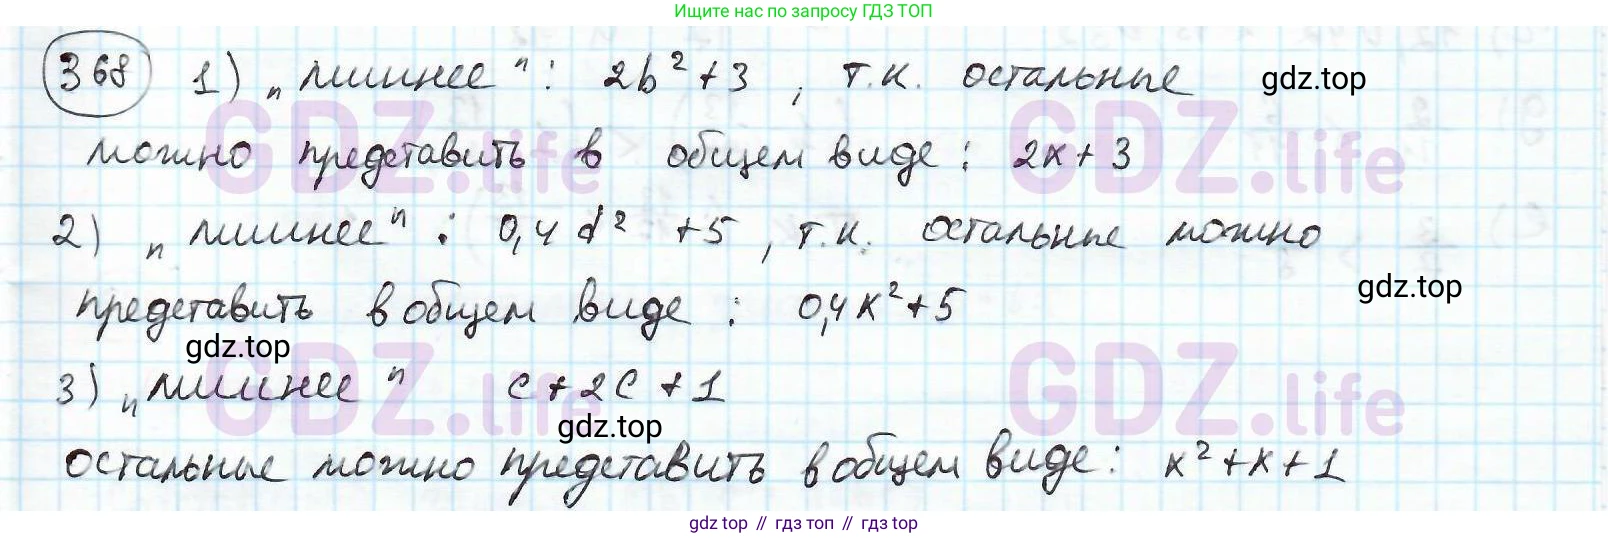 Ищите нас по запросу ГДЗ ТОП
368 1) „лишнее": 2b² + 3, т.к. остальные gdz.top
можно представить в общем виде: 2x + 3
GDZ.life GDZ.life
2) „лишнее": 0,4d² + 5, т.к. остальные можно
gdz.top
представить в общем виде: 0,4x² + 5
gdz.top
3) „лишнее" c + 2c + 1
GDZ.life GDZ.life
gdz.top
остальные можно представить в общем виде: x² + x + 1
gdz top // гдз топ // гдз top